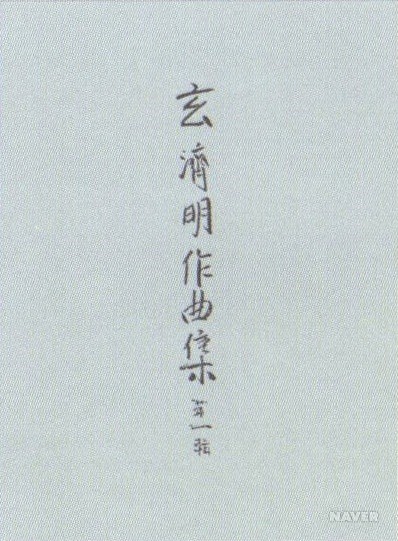 玄濟明作曲集 第一輯
NAVER